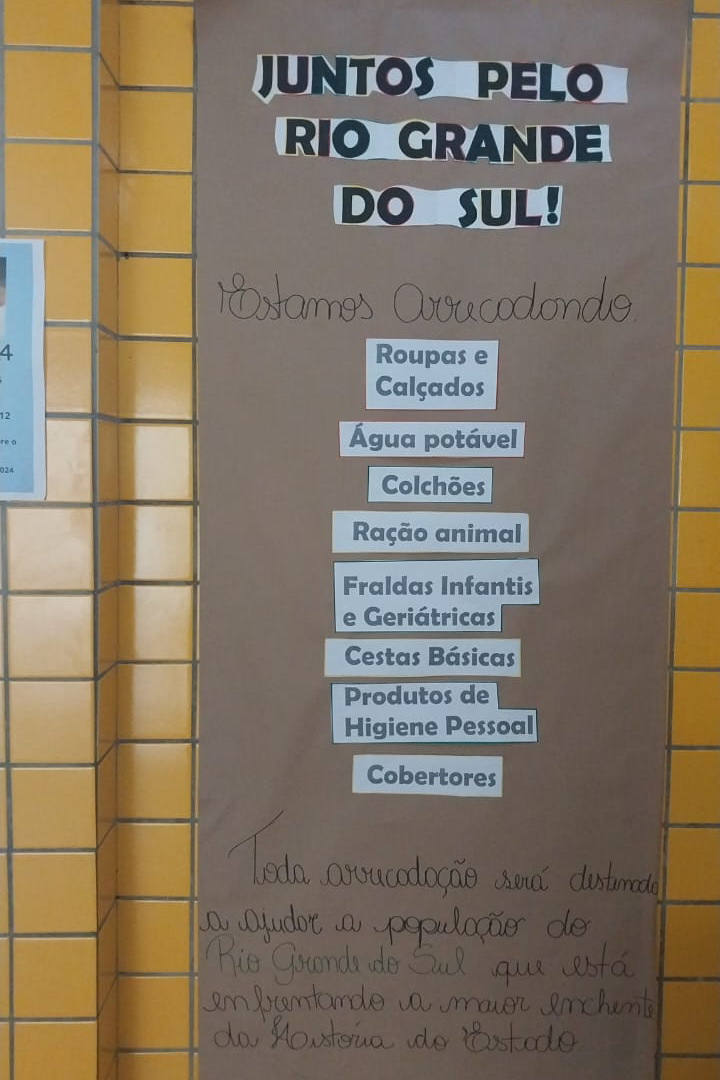 JUNTOS PELO
RIO GRANDE
DO SUL!
Estamos Arrecadando
Roupas e
Calçados
Água potável
Colchões
Ração animal
Fraldas Infantis
e Geriátricas
Cestas Básicas
Produtos de
Higiene Pessoal
Cobertores
Toda arrecadação será destinada
a ajudar a população do
Rio Grande do Sul que está
enfrentando a maior enchente
da História do Estado
4
12
re o
024